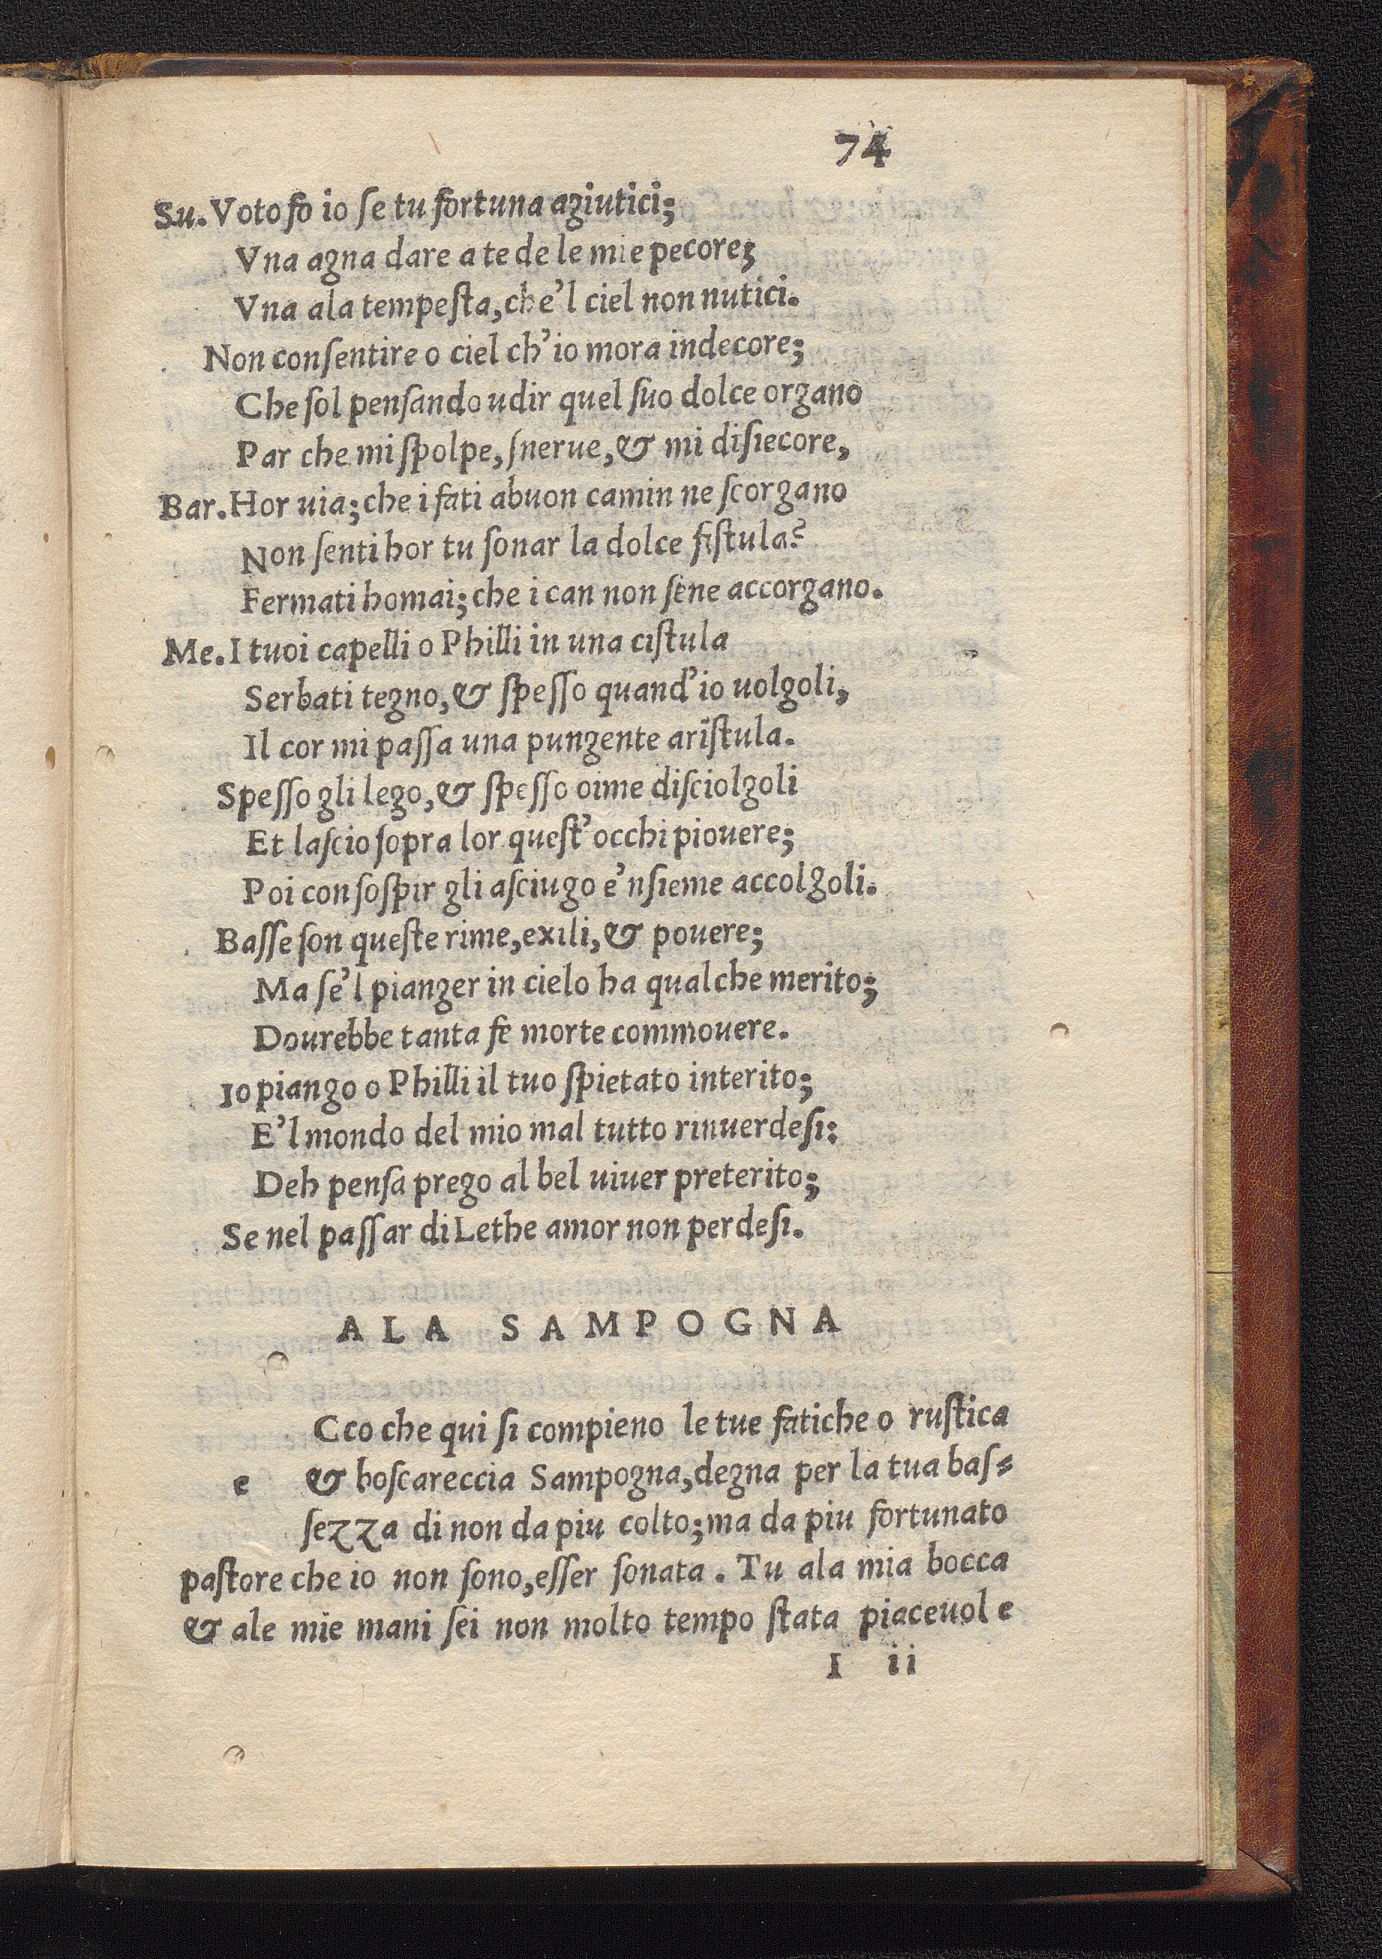 74
Su. Voto fo io se tu fortuna agiutici;
Vna agna dare a te de le mie pecore;
Vna ala tempesta, che'l ciel non nutici.
Non consentire o ciel ch'io mora indecore;
Che sol pensando udir quel suo dolce organo
Par che mi spolpe, snerue, & mi disiecore,
Bar. Hor uia; che i fati abuon camin ne scorgano
Non senti hor tu sonar la dolce fistula?
Fermati homai; che i can non sene accorgano.
Me. I tuoi capelli o Philli in una cistula
Serbati tegno, & spesso quand'io uolgoli,
Il cor mi passa una pungente aristula.
Spesso gli lego, & spesso oime disciolgoli
Et lascio sopra lor quest'occhi piouere;
Poi con sospir gli asciugo e'nsieme accolgoli.
Basse son queste rime, exili, & pouere;
Ma se'l pianger in cielo ha qualche merito;
Dourebbe tanta fe morte commouere.
Io piango o Philli il tuo spietato interito;
E'l mondo del mio mal tutto rinuerdesi:
Deh pensa prego al bel uiuer preterito;
Se nel passar di Lethe amor non perdesi.
ALA SAMPOGNA
Cco che qui si compieno le tue fatiche o rustica
e & boscareccia Sampogna, degna per la tua bas-
sezza di non da piu colto; ma da piu fortunato
pastore che io non sono, esser sonata. Tu ala mia bocca
& ale mie mani sei non molto tempo stata piaceuole
I ii